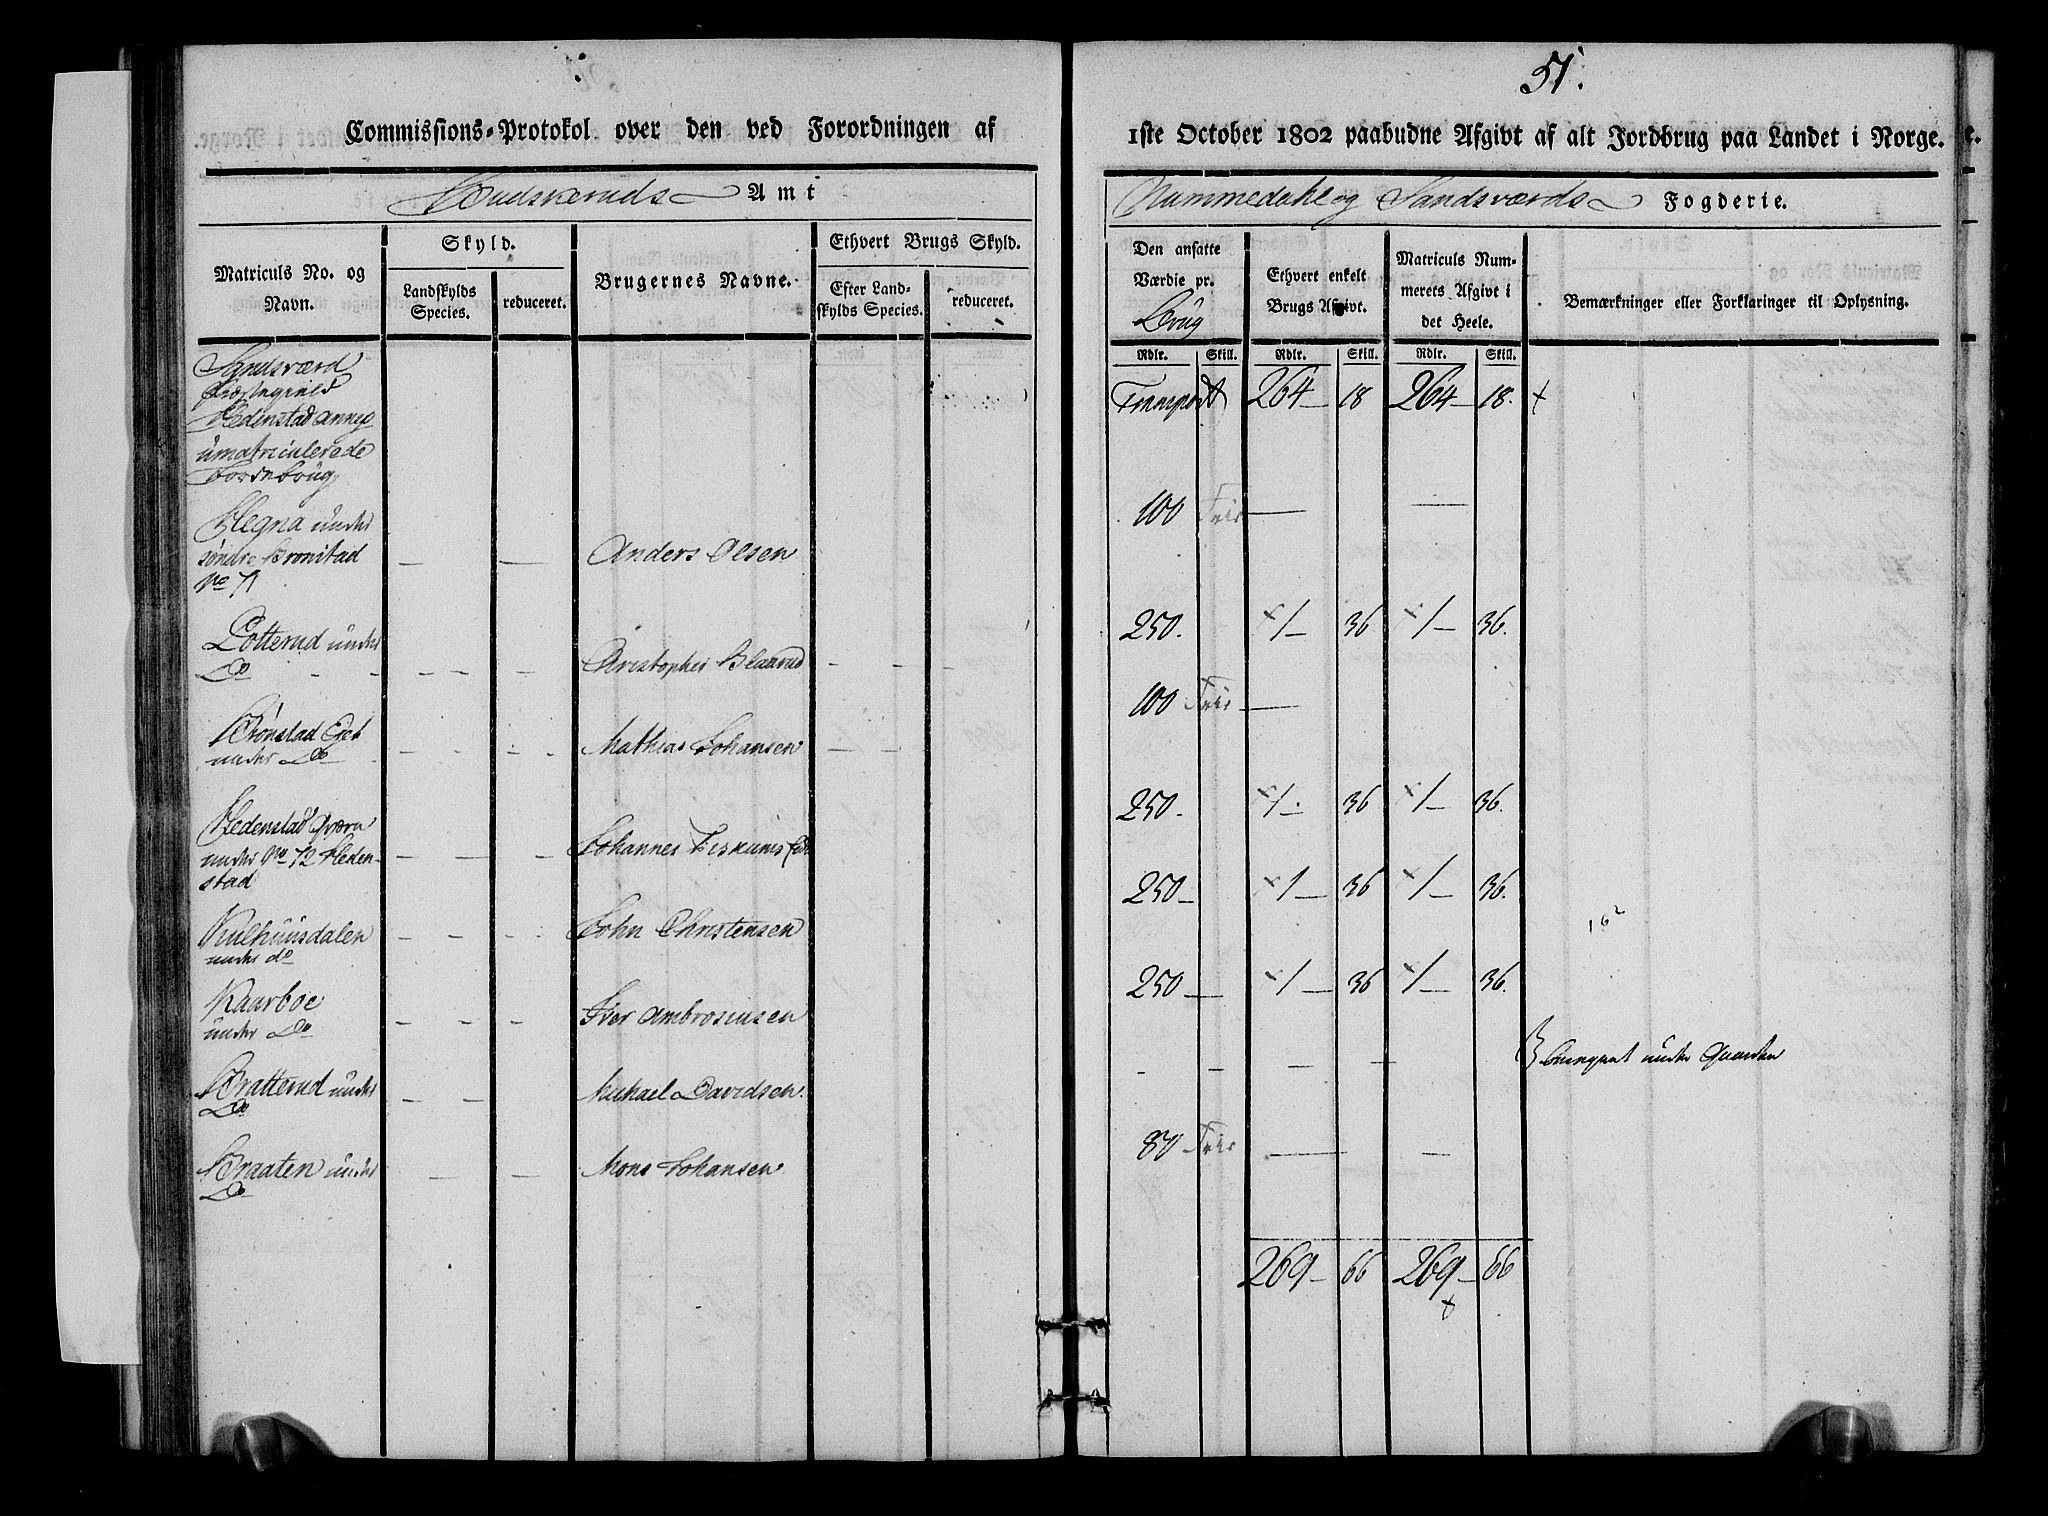 51.
Commissions-Protokol over den ved Forordningen af
1ste October 1802 paabudne Afgivt af alt Jordbrug paa Landet i Norge.
Buskeruds Amt
Nummedahl og Sandsværds Fogderie.
Matriculs No. og Navn.
Skyld.
Landskylds Species.
reduceret.
Brugernes Navne.
Ethvert Brugs Skyld.
Efter Landskylds Species.
reduceret.
Den ansatte Værdie pr. Brug
Ethvert enkelt Brugs Afgivt.
Matriculs Nummerets Afgivt i det Heele.
Bemærkninger eller Forklaringer til Oplysning.
Rdlr. Skill. Rdlr. Skill. Rdlr. Skill.
Sandsværd
Præstegield
Hedenstad Annex
umatriculerede
Jordebrug
Transport 264 – 18 264 – 18.
Hegna under
søndre Bronstad
No 71
Anders Olsen
100 Frie
Lotterud under
Do
Christopher Blaarud
250. 1 – 36 1 – 36.
Brönstad Eiet
under Do
Mathias Johansen
100 Frie
Hedenstad Qværn
under No 72 Heden-
stad
Johannes
250. 1 – 36 1 – 36.
Kulhuusdalen
under do
John Christensen
250 – 1 – 36 1 – 36.
Kaarboe
under Do
Iver Ambrosiusen
250 – 1 – 36 1 – 36.
Bratterud under
Do
Michael Davidsen.
under Gaarden
Braaten under
Do
Mons Johansen
80 Frie
269 – 66 269 – 66